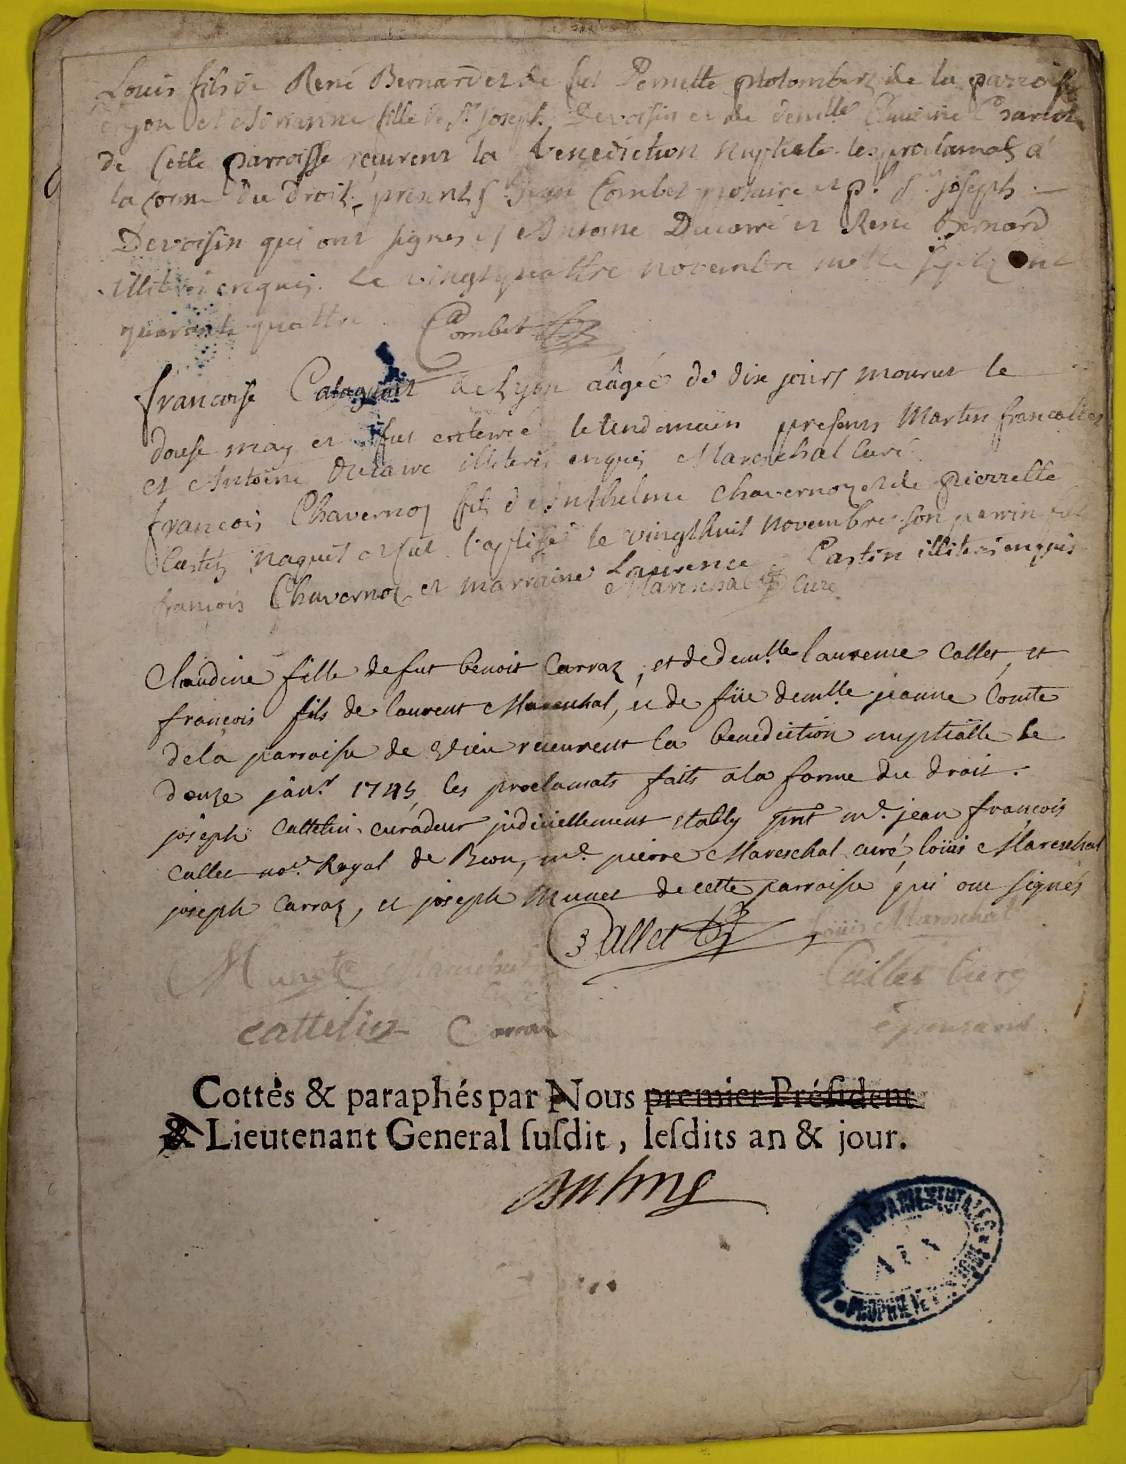 Louis fils de René Bernard et de fut Pernette de la parroisse
et Adrianne fille de Sr Joseph Devoisin et de demlle
de cette parroisse reçurent la benediction nuptiale les proclamats a
la forme du droit, presents Jean Combet notaire et Sr joseph
Devoisin qui ont signés et Antoine Ducarre et René Bernard
illiterés enquis. Le vingt quattre novembre mille sept cent
quarante quattre Combet
francoise de Lyon aâgée de dix jours mourut le
douse may et fut enterrée le lendemain presents Martin francallet
et Antoine Ducarre illiterés enquis Mareschal Curé
francois Chavernoz fils d'Anthelme Chavernoz et de pierrette
Castin naquit et fut baptisé le vingt huit novembre son parrin
françois Chavernoz et marraine Laurence Castin illiterés enquis
Mareschal Curé
Claudine fille de fut benoit Carraz, et de demlle laurence Callet, et
francois fils de laurent Mareschal, et de füe demlle jeanne Comte
de la parroisse de Vieu reçeurent la benediction nuptialle le
douze janr 1745 les proclamats faits a la forme du droit.
joseph Cattelin curadeur judiciellement etably pnt mr jean francois
Callet nore Royal de Beon, mre pierre Mareschal curé, loüis Mareschal
joseph Carraz, et joseph Munet de cette parroisse qui ont signés
Callet loüis Mareschal
Munet Mareschal Callet Curé
cattelin Carraz
Cottés & paraphés par Nous premier Président
& Lieutenant General susdit, lesdits an & jour.
ARCHIVES DEPARTEMENTALES
AIN
PROPRIETE